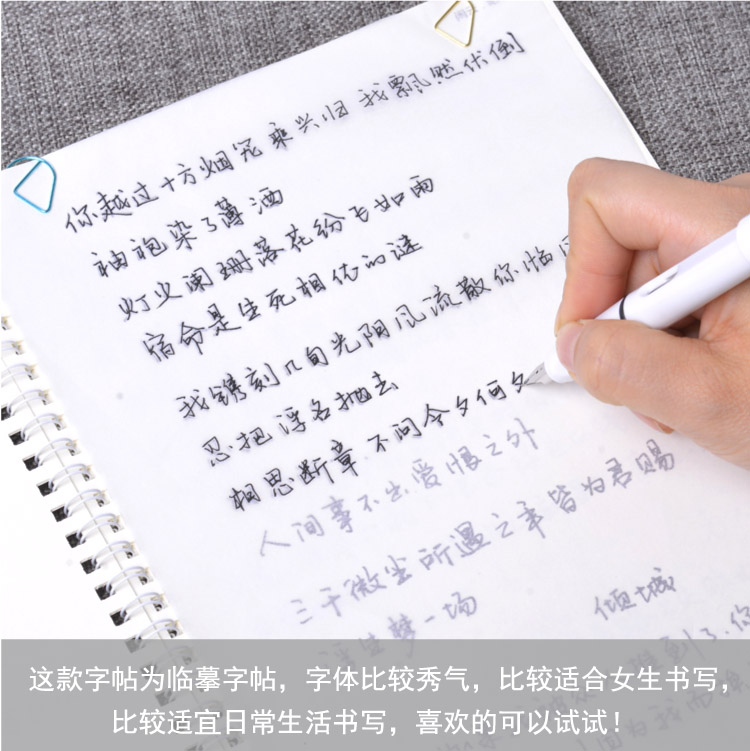 你越过十方烟冗乘兴归 我飘然伏倒
袖袍染了薄酒
灯火阑珊落花纷飞如雨
宿命是生死相依的谜
我镌刻几旬光阳风流散你临
忍把浮名抛去
相思断章 不问今夕何夕
人间事不出爱恨之外
三千微尘所遇之幸皆为君赐
浮生梦一场 倾城
到了你
这款字帖为临摹字帖，字体比较秀气，比较适合女生书写，
比较适宜日常生活书写，喜欢的可以试试！